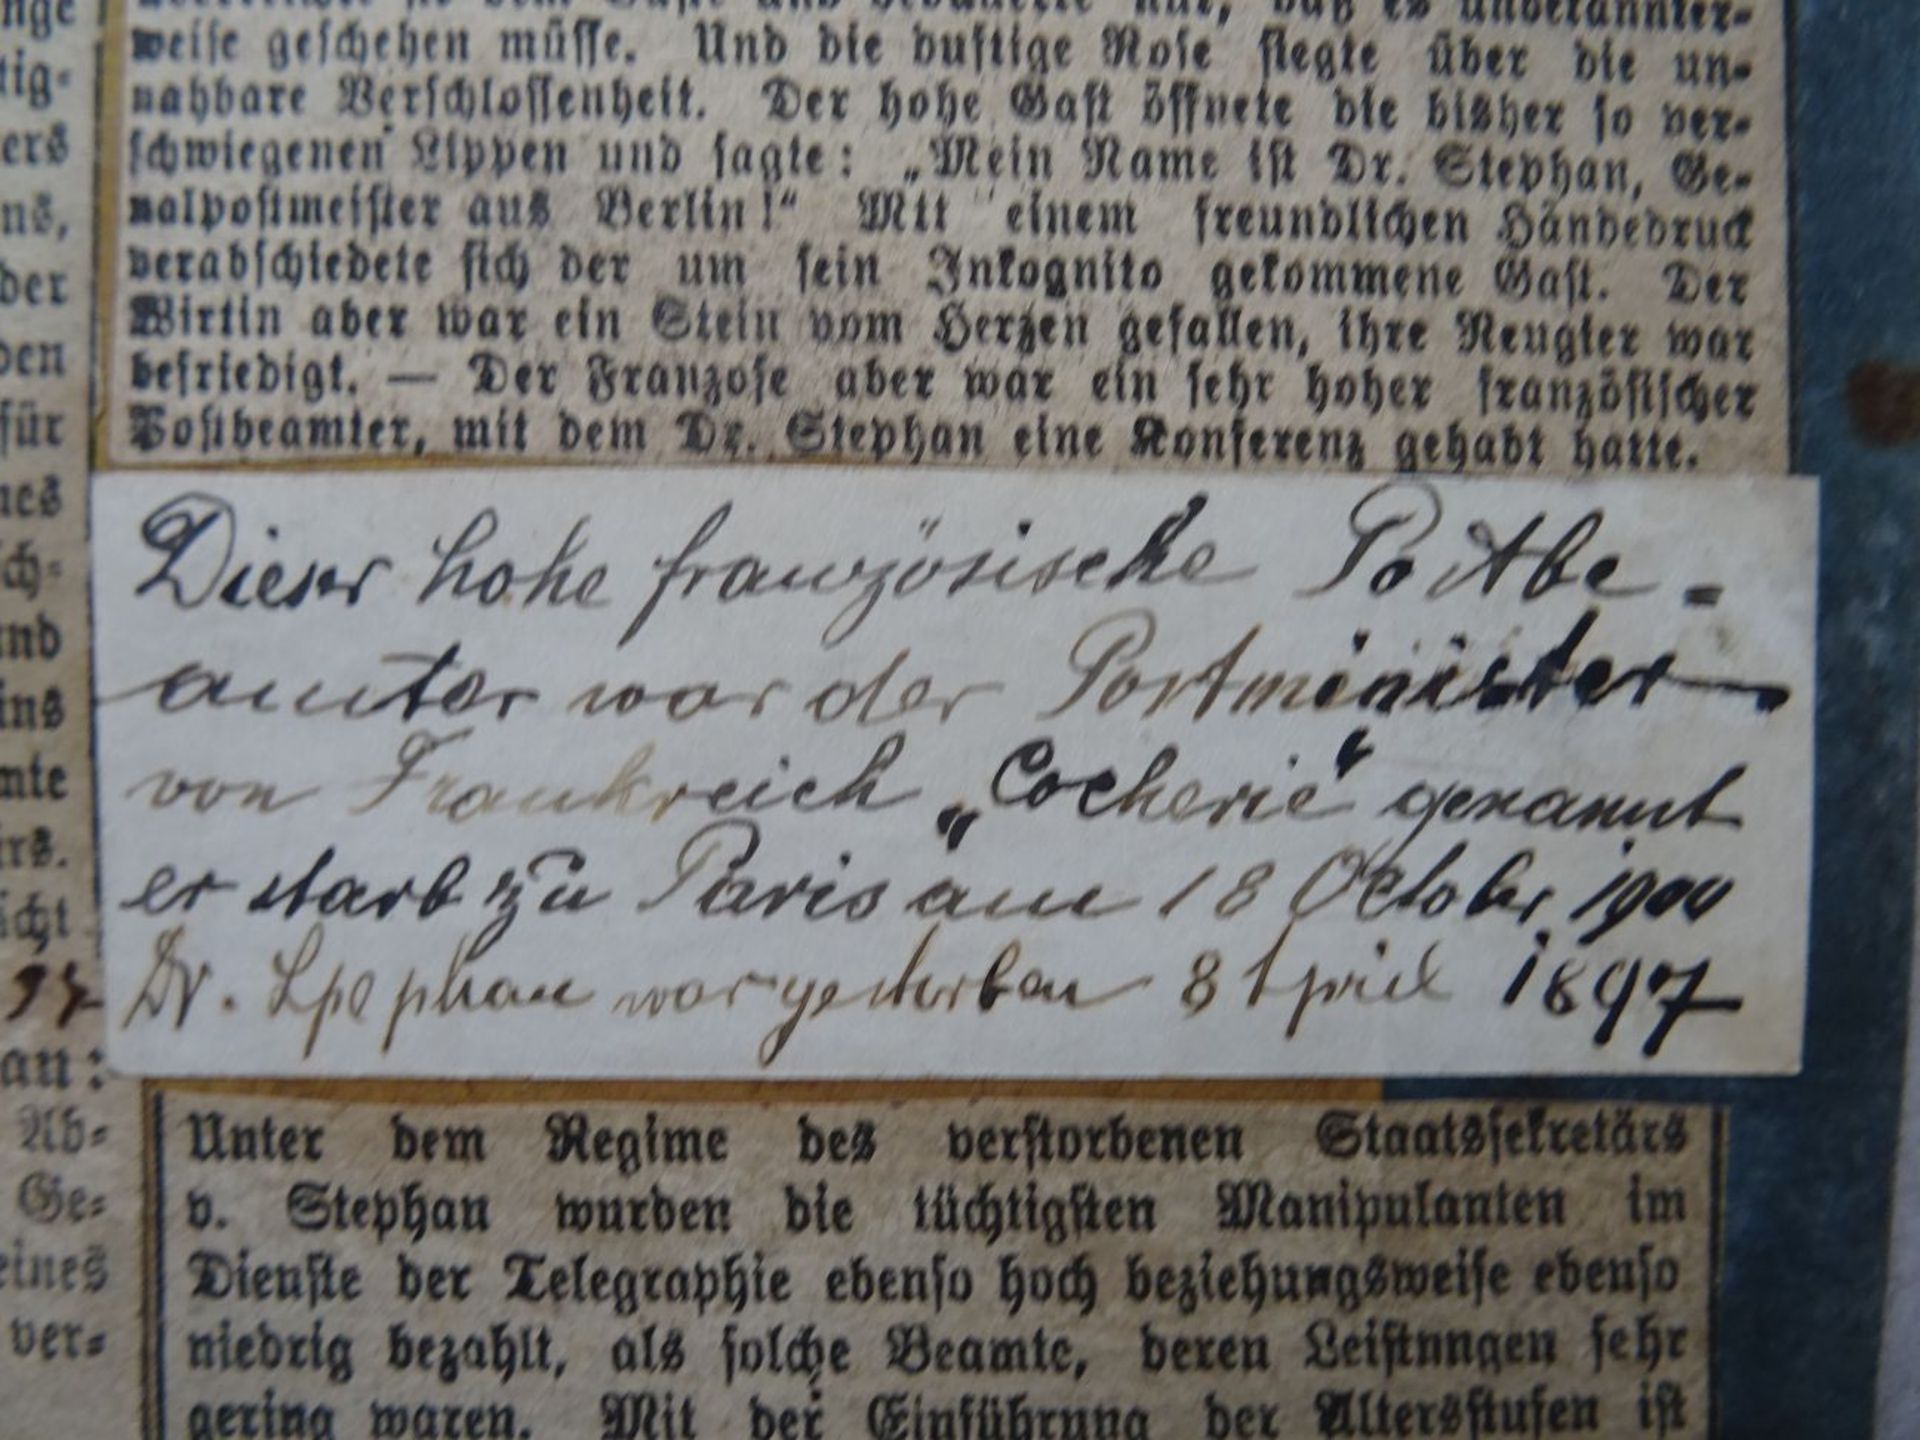 nge
weise geschehen müsse. Und die duftige Rose siegte über die un-
tig-
nahbare Verschlossenheit. Der hohe Gast öffnete die bisher so ver-
ers
schwiegenen Lippen und sagte: „Mein Name ist Dr. Stephan, Ge-
ns,
nalpostmeister aus Berlin!“ Mit einem freundlichen Händedruck
der
verabschiedete sich der um sein Inkognito gekommene Gast. Der
Wirtin aber war ein Stein vom Herzen gefallen, ihre Neugier war
den
befriedigt. — Der Franzose aber war ein sehr hoher französischer
für
Postbeamter, mit dem Dr. Stephan eine Konferenz gehabt hatte.
nes
sch-
und
ins
mte
irs.
icht
an:
Ab-
Ge-
eines
ver-
Dieser hohe französische Postbe=
amter war der Postminister
von Frankreich „Cocherie“ genannt
er starb zu Paris am 18 October 1900
Dr. Stephan war gestorben 8 April 1897
Unter dem Regime des verstorbenen Staatssekretärs
v. Stephan wurden die tüchtigsten Manipulanten im
Dienste der Telegraphie ebenso hoch beziehungsweise ebenso
niedrig bezahlt, als solche Beamte, deren Leistungen sehr
gering waren. Mit der Einführung der Altersstufen ist